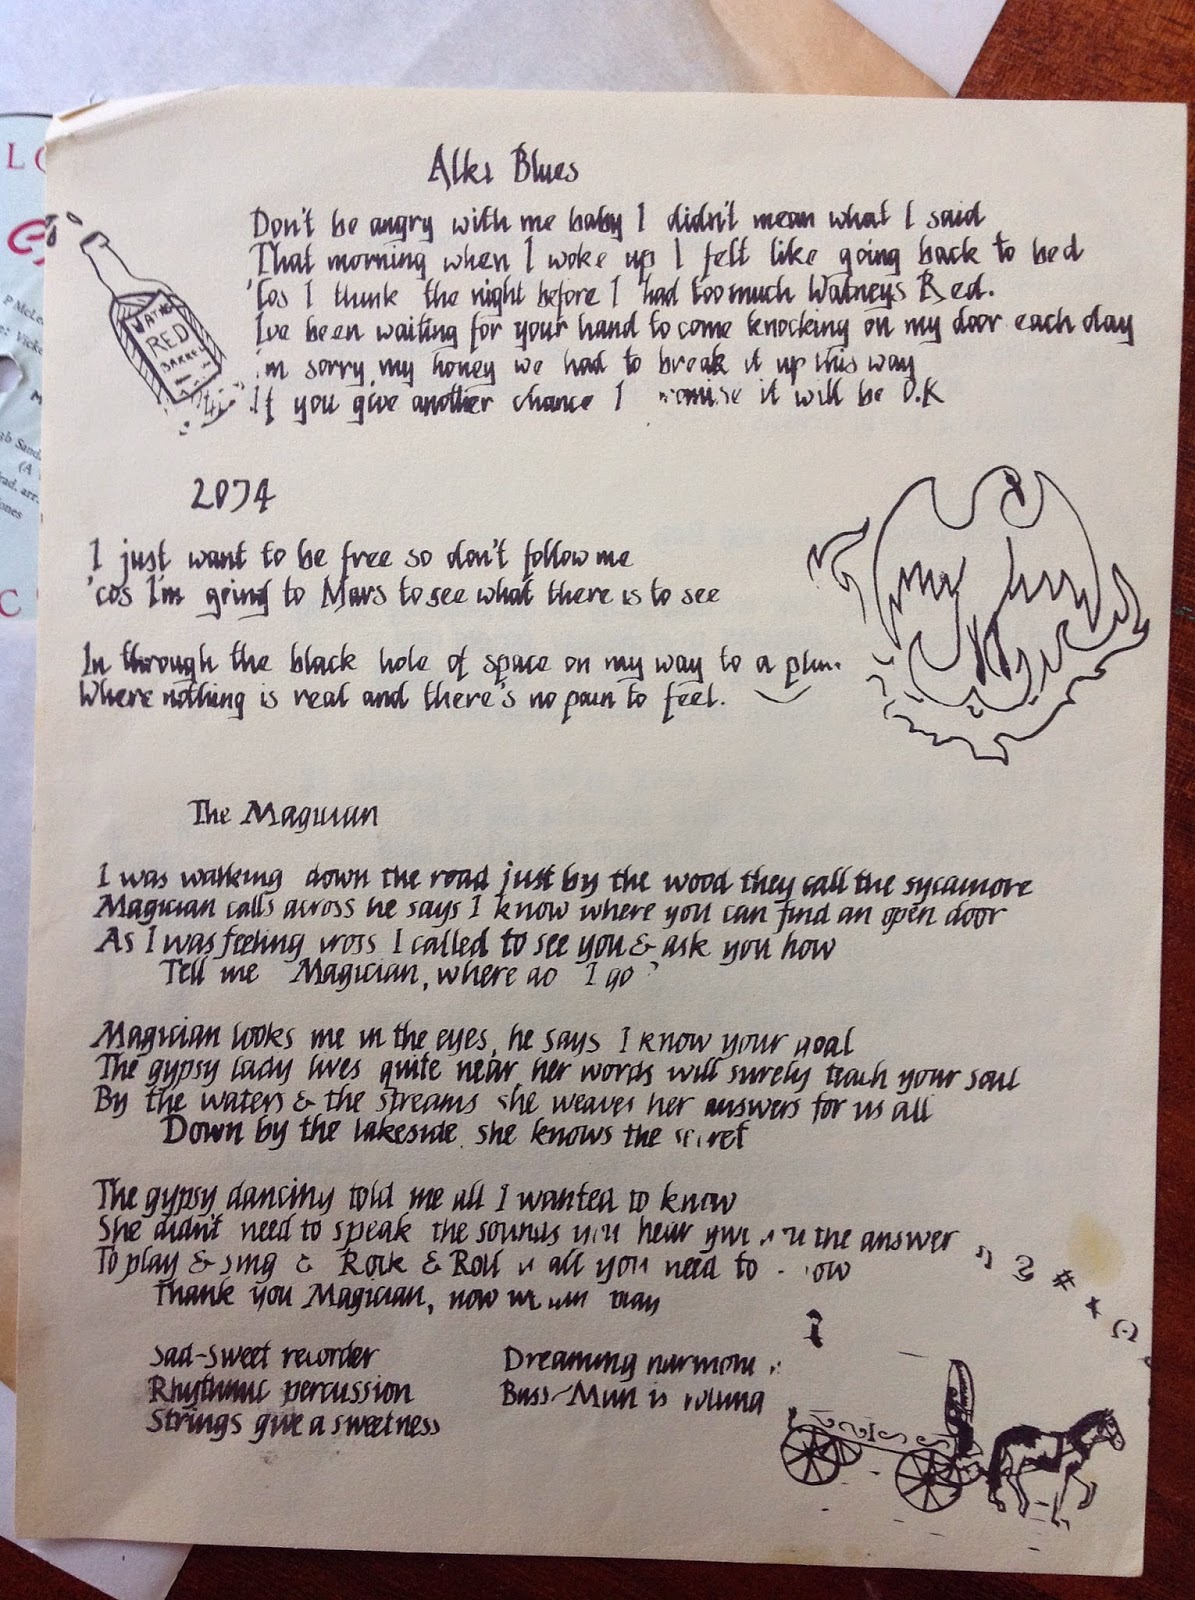 Alki Blues
Don't be angry with me baby I didn't mean what I said
That morning when I woke up I felt like going back to bed
'Cos I think the night before I had too much Watneys Red.
I've been waiting for your hand to come knocking on my door each day
I'm sorry my honey we had to break it up this way
If you give another chance I promise it will be O.K
WATNEYS
RED
BARREL
2074
I just want to be free so don't follow me
'cos I'm going to Mars to see what there is to see
In through the black hole of space on my way to a
Where nothing is real and there's no pain to feel.
The Magician
I was walking down the road just by the wood they call the sycamore
Magician calls across he says I know where you can find an open door
As I was feeling cross I called to see you & ask you how
Tell me Magician, where do I go?
Magician looks me in the eyes, he says I know your goal
The gypsy lady lives quite near, her words will surely teach your soul
By the waters & the streams she weaves her answers for us all
Down by the lakeside she knows the secret
The gypsy dancing told me all I wanted to know
She didn't need to speak the sounds you hear give you the answer
To play & sing & Rock & Roll is all you need to know
Thank you Magician, now we can play
Sad-sweet recorder
Rhythmic percussion
Strings give a sweetness
Dreaming harmony
Bass-Man is